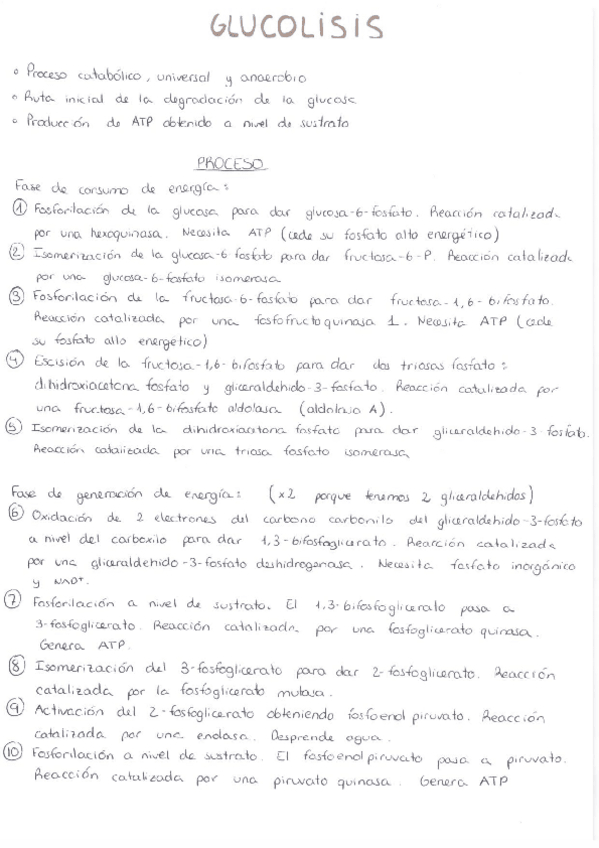 GLUCOLISIS
° Proceso catabólico, universal y anaerobio
° Ruta inicial de la degradación de la glucosa
° Producción de ATP obtenido a nivel de sustrato
PROCESO
Fase de consumo de energía:
① Fosforilación de la glucosa para dar glucosa-6-fosfato. Reacción catalizada
por una hexoquinasa. Necesita ATP (cede su fosfato alto energético)
② Isomerización de la glucosa-6 fosfato para dar fructosa-6-P. Reacción catalizada
por una glucosa-6-fosfato isomerasa
③ Fosforilación de la fructosa-6-fosfato para dar fructosa-1,6-bifosfato.
Reacción catalizada por una fosfofructoquinasa 1. Necesita ATP (cede
su fosfato alto energético)
④ Escisión de la fructosa-1,6-bifosfato para dar dos triosas fosfato:
dihidroxiacetona fosfato y gliceraldehido-3-fosfato. Reacción catalizada por
una fructosa-1,6-bifosfato aldolasa (aldolasa A).
⑤ Isomerización de la dihidroxiacetona fosfato para dar gliceraldehido-3-fosfato.
Reacción catalizada por una triosa fosfato isomerasa
Fase de generación de energía: (x2 porque tenemos 2 gliceraldehidos)
⑥ Oxidación de 2 electrones del carbono carbonilo del gliceraldehido-3-fosfato
a nivel del carboxilo para dar 1,3-bifosfoglicerato. Reacción catalizada
por una gliceraldehido-3-fosfato deshidrogenasa. Necesita fosfato inorgánico
y NAD⁺.
⑦ Fosforilación a nivel de sustrato. El 1,3-bifosfoglicerato pasa a
3-fosfoglicerato. Reacción catalizada por una fosfoglicerato quinasa.
Genera ATP.
⑧ Isomerización del 3-fosfoglicerato para dar 2-fosfoglicerato. Reacción
catalizada por la fosfoglicerato mutasa.
⑨ Activación del 2-fosfoglicerato obteniendo fosfoenol piruvato. Reacción
catalizada por una enolasa. Desprende agua.
⑩ Fosforilación a nivel de sustrato. El fosfoenolpiruvato pasa a piruvato.
Reacción catalizada por una piruvato quinasa. Genera ATP